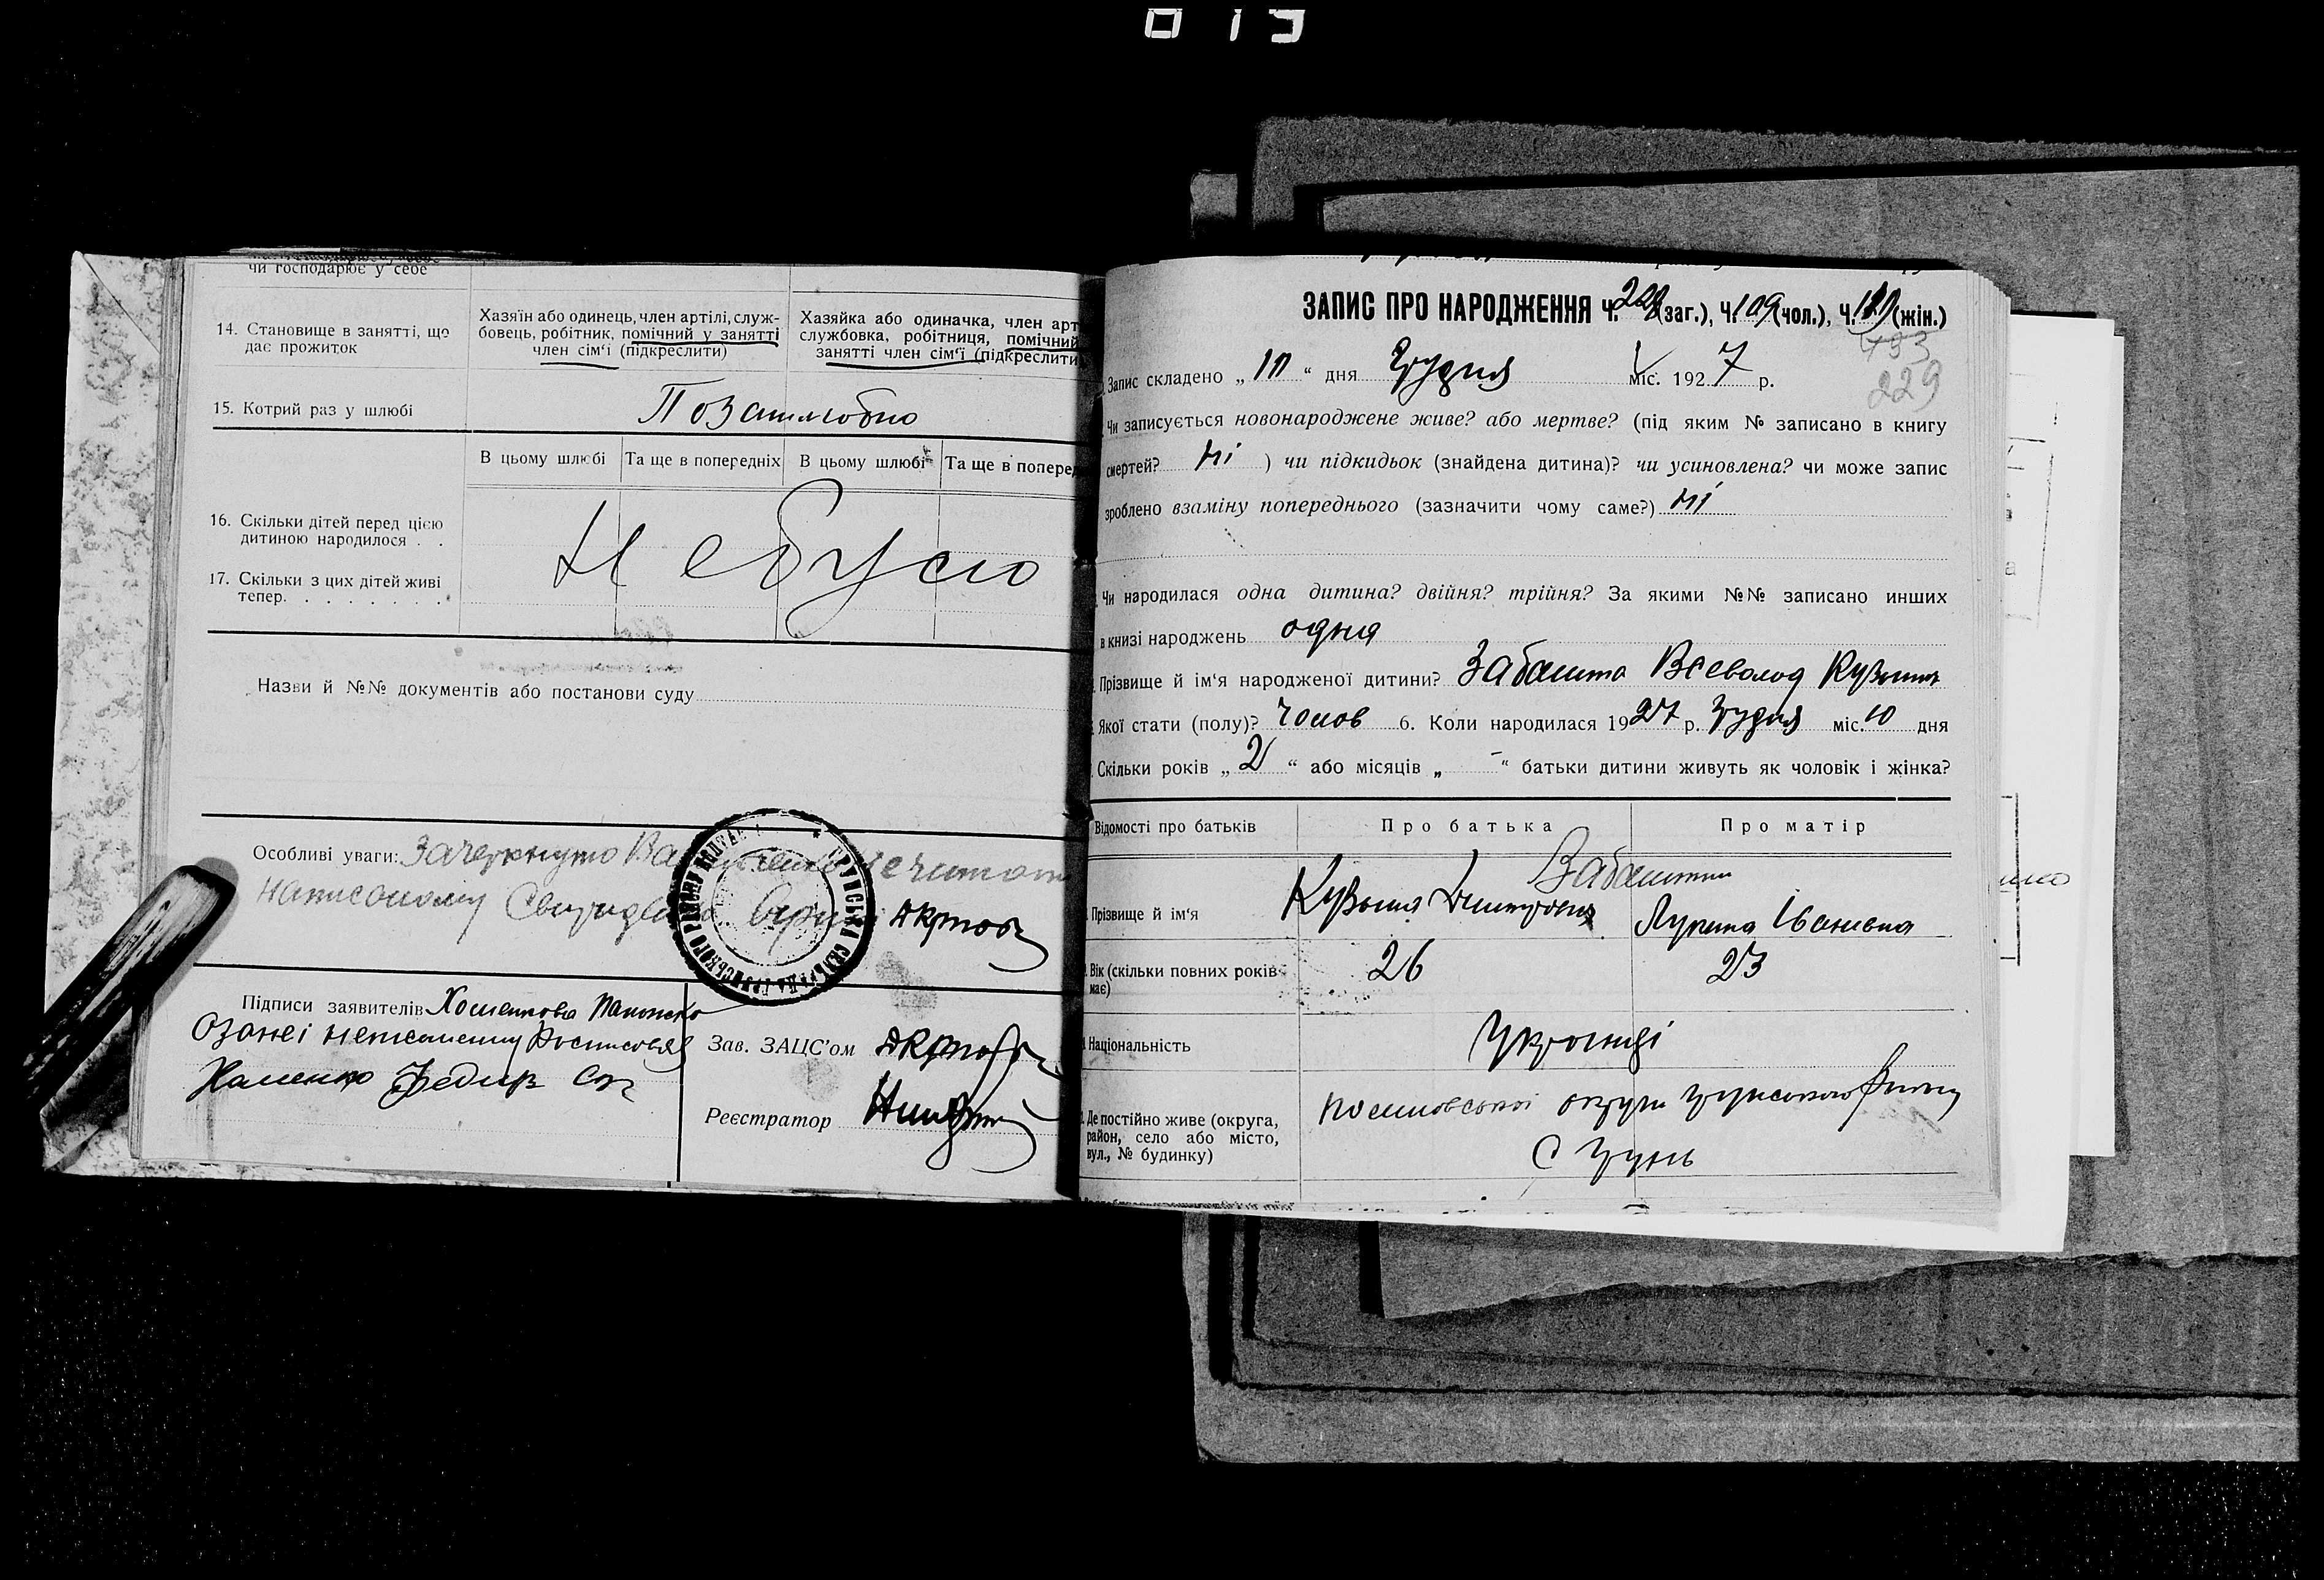 чи господарює у себе
14. Становище в занятті, що дає прожиток
Хазяїн або одинець, член артілі, служ-
бовець, робітник, помічний у занятті
член сім'ї (підкреслити)
Хазяйка або одиначка, член арт
службовка, робітниця, помічний
занятті член сім'ї (підкреслити
15. Котрий раз у шлюбі
Позашлюбно
В цьому шлюбі Та ще в попередніх В цьому шлюбі Та ще в поперед
16. Скільки дітей перед цією
дитиною народилося . .
Небуло
17. Скільки з цих дітей живі
тепер. . . . . . . .
Назви й №№ документів або постанови суду
Особливі уваги: Зачеркнуто
написаному
Підписи заявителів
неписьменну
Федир
Зав. ЗАЦС'ом
Реєстратор
ЗАПИС ПРО НАРОДЖЕННЯ Ч. (заг.), Ч. 109 (чол.), Ч. (жін.)
193
229
Запис складено „ “ дня Грудня міс. 1927 р.
Чи записується новонароджене живе? або мертве? (під яким № записано в книгу
смертей? ні ) чи підкидьок (знайдена дитина)? чи усиновлена? чи може запис
зроблено взаміну попереднього (зазначити чому саме?) ні
Чи народилася одна дитина? двійня? трійня? За якими №№ записано инших
в книзі народжень одна
Прізвище й ім'я народженої дитини? Забашта Всеволод Кузьмич
Якої стати (полу)? Чолов 6. Коли народилася 1927 р. Грудня міс. 10 дня
Скільки років „ 2 “ або місяців „ - “ батьки дитини живуть як чоловік і жінка?
Відомості про батьків Про батька Про матір
Забашти
Прізвище й ім'я Кузьма Дмитрович Лукина Іванівна
Вік (скільки повних років має) 26 23
Національність Українці
Де постійно живе (округа,
район, село або місто,
вул., № будинку)
округи Грунського району
С Грунь